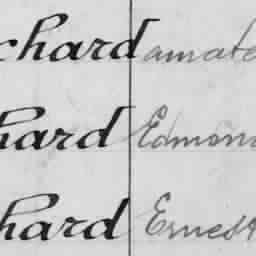 chard amate
hard Edmon
hard Ernest